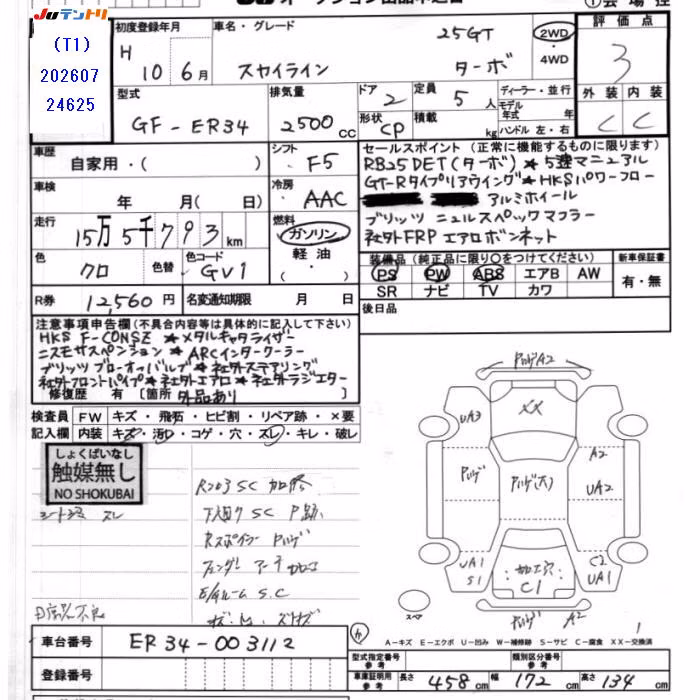 JUテントリ
(T1)
202607
24625
初度登録年月
車名・グレード
25GT
2WD
・
4WD
評価点
3
H 10 6月
スカイライン
ターボ
型式
GF-ER34
排気量
2500cc
ドア
2
定員
5人
形状
CP
積載
kg
ディーラー・並行
モデル年式 年
ハンドル 左・右
外装 内装
C C
車歴
自家用・( )
シフト
F5
車検
年 月( 日)
冷房
AAC
走行
15万5千793km
燃料
ガソリン
軽油
・( )
色
クロ
色替
色コード
GV1
R券
12,560円
名変通知期限 月 日
セールスポイント(正常に機能するものに限ります)
RB25DET(ターボ)★5速マニュアル
GT-Rタイプリアウイング★HKSパワーフロー
アルミホイール
ブリッツ ニュルスペックマフラー
社外FRPエアロボンネット
装備品(純正品に限り○をつけてください)
新車保証書
PS PW ABS エアB AW
SR ナビ TV カワ
有・無
後日品
注意事項申告欄(不具合内容等は具体的に記入して下さい)
HKS F-CONSZ ★メタルキャタライザー
ニスモサスペンション ★ARCインタークーラー
ブリッツブローオフバルブ★社外ステアリング
社外フロントパイプ★社外エアロ★社外ラジエター
修復歴 有 [箇所 外品あり ]
検査員
記入欄
FW キズ・飛石・ヒビ割・リペア跡・×要
内装 キズ・汚レ・コゲ・穴・スレ・キレ・破レ
しょくばいなし
触媒無し
NO SHOKUBAI
シート スレ
下廻りSC P跡
Rスポイラー ハゲ
S.C
ハゲA2
UA3
XX
A2
ハゲ
ハゲ(大)
UA2
UA1
S1
加工穴
C1
C2
UA1
ハゲ A2
スペア
A-キズ E-エクボ U-凹み W-補修跡 S-サビ C-腐食 XX-交換済
車台番号
ER34-003112
登録番号
型式指定番号
参考
類別区分番号
参考
車庫証明用
参考
長さ 458cm 幅 172cm 高さ 134cm